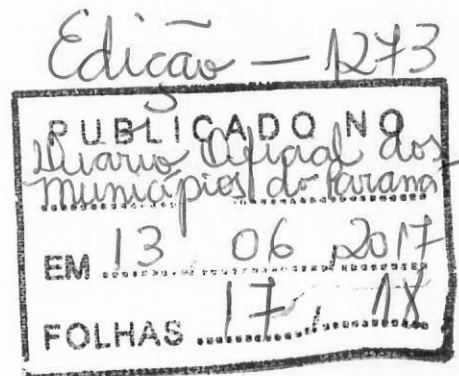 Edição — 1273
PUBLICADO NO
Diario Oficial dos
Municípios do Paraná
EM 13 06 2017
FOLHAS 17, 18